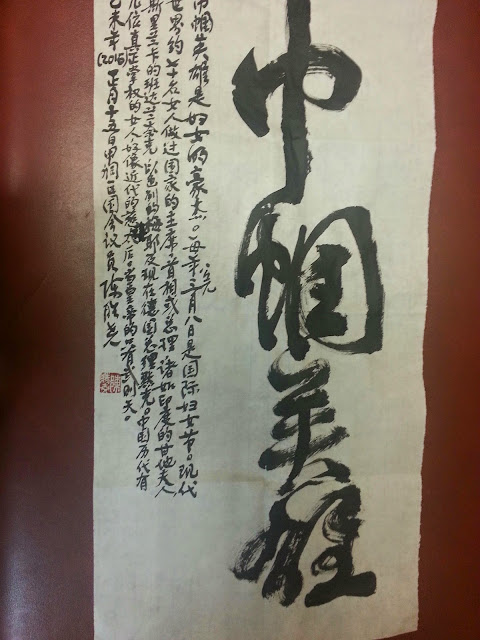 巾帼英雄
巾帼英雄是妇女的豪杰。每年三月八日是国际妇女节。现代
世界约七十名女人做过国家的主席、首相或总理诸如印度的甘地夫人
斯里兰卡的班达兰奈克、以色列的梅耶及现在德国总理默克。中国历代有
几位真正掌权的女人,好像近代的慈后。当皇帝的只有武则天。
乙未年(2015)正月十五日甲洞区国会议员陈胜尧